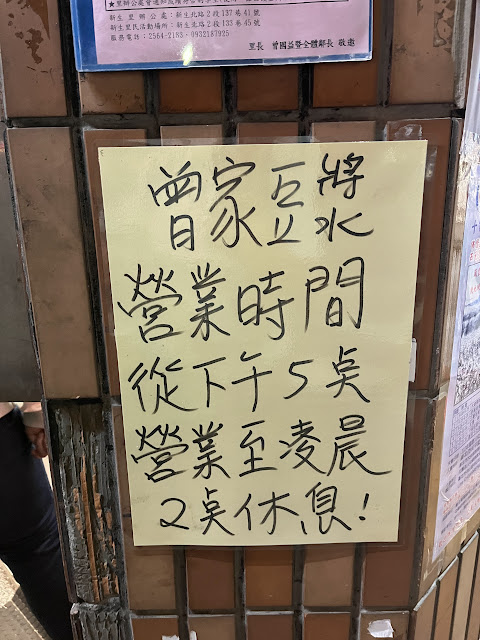 新生里辦公處:新生北路2段137巷41號
新生里民活動場所:新生北路2段133巷45號
服務電話:2564-2183、0932187925
里長 曾國益暨全體鄰長 敬邀
曾家豆漿
營業時間
從下午5点
營業至凌晨
2点休息!